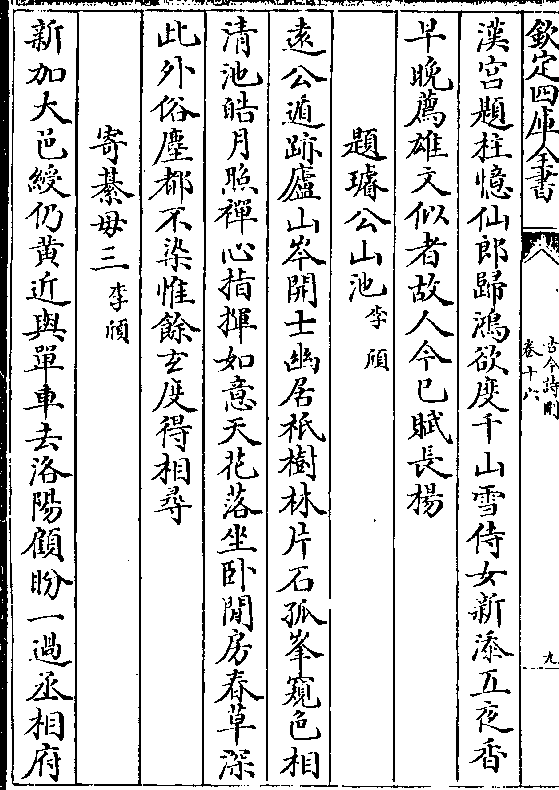 欽定四庫全書
古今詩刪
卷十六
九
漢宫題柱憶仙郎歸鴻欲度千山雪侍女新添五夜香
早晚薦雄文似者故人今已賦長楊
題璿公山池李頎
遠公遁跡廬山岑開士幽居祇樹林片石孤峯窺色相
清池皓月照禪心指揮如意天花落坐卧閒房春草深
此外俗塵都不染惟餘玄度得相尋
寄綦毋三李頎
新加大邑綬仍黄近與單車去洛陽顧盼一過丞相府